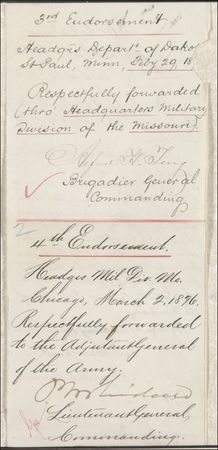 3rd Endorsement
Headqrs Depart. of Dakota
St Paul, Minn, Feby 29, 18
Respectfully forwarded
(thro Headquarters Military
Division of the Missouri).
Alfred H. Terry
Brigadier General
Commanding
2
4th Endorsement.
Headqrs Mil Div. Mo.
Chicago, March 2, 1876.
Respectfully forwarded
to the Adjutant General
of the Army.
Lieutenant General,
Commanding.